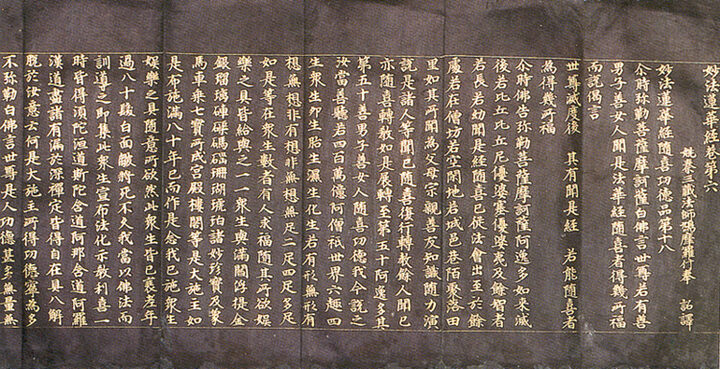 妙法蓮華經卷第六
姚秦三藏法師鳩摩羅什奉 詔譯
妙法蓮華經隨喜功德品第十八
尒時弥勒菩薩摩訶薩白佛言世尊若有善
男子善女人聞是法華經隨喜者得幾所福
而說偈言
世尊滅度後 其有聞是經 若能隨喜者
為得幾所福
尒時佛告弥勒菩薩摩訶薩阿逸多如來滅
後若比丘比丘尼優婆塞優婆夷及餘智者
若長若幼聞是經隨喜已從法會出至於餘
處若在僧坊若空閑地若城邑巷陌聚落田
里如其所聞為父母宗親善友知識隨力演
說是諸人等聞已隨喜復行轉教餘人聞已
亦隨喜轉教如是展轉至第五十阿逸多其
第五十善男子善女人隨喜功德我今說之
汝當善聽若四百萬億阿僧祇世界六趣四
生衆生卵生胎生濕生化生若有形無形有
想無想非有想非無想無足二足四足多足
如是等在衆生數者有人求福隨其所欲娛
樂之具皆給與之一一衆生與滿閻浮提金
銀瑠璃硨磲碼碯珊瑚琥珀諸妙珍寶及象
馬車乘七寶所成宮殿樓閣等是大施主如
是布施滿八十年已而作是念我已施衆生
娛樂之具隨意所欲然此衆生皆已衰老年
過八十髮白面皺將死不久我當以佛法而
訓導之即集此衆生宣布法化示教利喜一
時皆得須陀洹道斯陀含道阿那含道阿羅
漢道盡諸有漏於深禪定皆得自在具八解
脫於汝意云何是大施主所得功德寧為多
不弥勒白佛言世尊是人功德甚多無量無